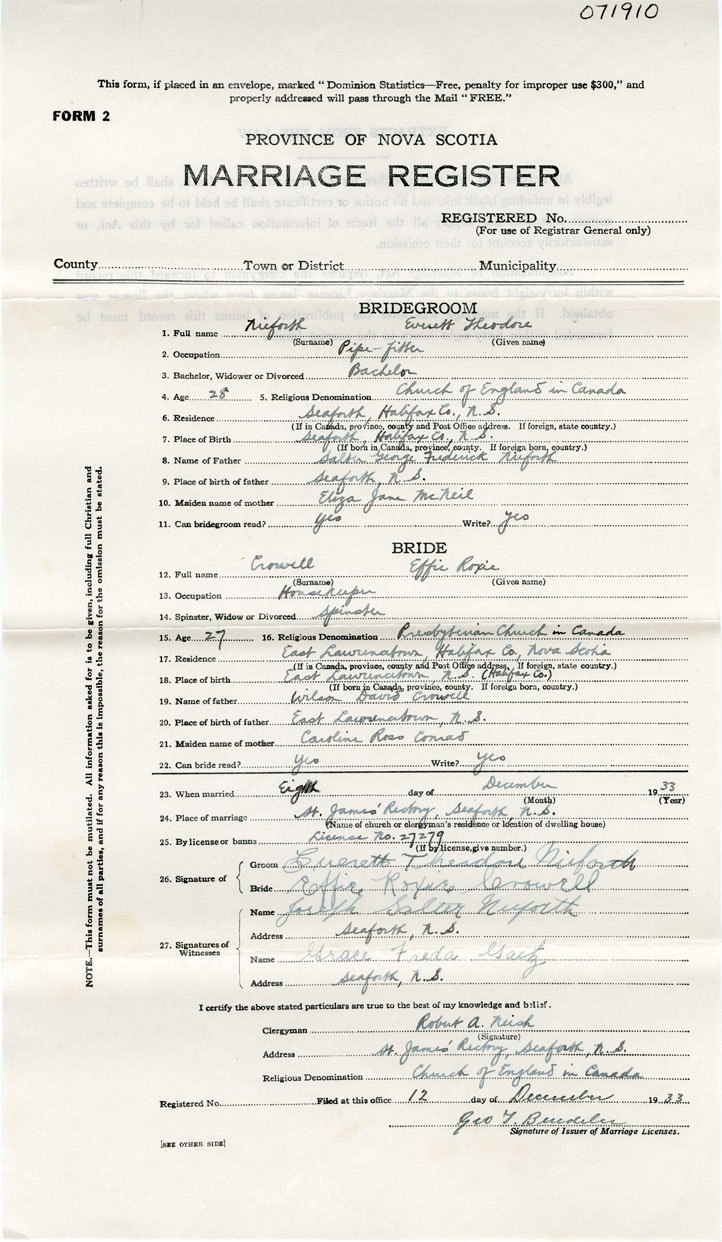 071910
This form, if placed in an envelope, marked "Dominion Statistics—Free, penalty for improper use $300," and
properly addressed will pass through the Mail "FREE."
FORM 2
PROVINCE OF NOVA SCOTIA
MARRIAGE REGISTER
REGISTERED No.
(For use of Registrar General only)
County Town or District Municipality
BRIDEGROOM
1. Full name Nieforth Everett Theodore
(Surname) (Given name)
2. Occupation Pipe-fitter
3. Bachelor, Widower or Divorced Bachelor
4. Age 28 5. Religious Denomination Church of England in Canada
6. Residence Seaforth, Halifax Co., N.S.
(If in Canada, province, county and Post Office address. If foreign, state country.)
7. Place of Birth Seaforth, Halifax Co., N.S.
(If born in Canada, province, county. If foreign born, country.)
8. Name of Father Salter George Frederick Nieforth
9. Place of birth of father Seaforth, N.S.
10. Maiden name of mother Eliza Jane McNeil
11. Can bridegroom read? Yes Write? Yes
BRIDE
12. Full name Crowell Effie Roxie
(Surname) (Given name)
13. Occupation Housekeeper
14. Spinster, Widow or Divorced Spinster
15. Age 27 16. Religious Denomination Presbyterian Church in Canada
17. Residence East Lawrencetown, Halifax Co, Nova Scotia
(If in Canada, province, county and Post Office address. If foreign, state country.)
18. Place of birth East Lawrencetown N.S. (Halifax Co.)
(If born in Canada, province, county. If foreign born, country.)
19. Name of father Wilson David Crowell
20. Place of birth of father East Lawrencetown, N.S.
21. Maiden name of mother Caroline Ross Conrad
22. Can bride read? Yes Write? Yes
23. When married Eighth day of December 1933
(Month) (Year)
24. Place of marriage St. James' Rectory, Seaforth, N.S.
(Name of church or clergyman's residence or location of dwelling house)
25. By license or banns License No. 27279
(If by license, give number.)
26. Signature of
Groom Evereth Theadore Nieforth
Bride Effie Roxie Crowell
27. Signatures of Witnesses
Name Joseph Salter Nieforth
Address Seaforth, N.S.
Name Grace Freda Gaetz
Address Seaforth, N.S.
I certify the above stated particulars are true to the best of my knowledge and belief.
Clergyman Robert A. Neish
(Signature)
Address St. James' Rectory, Seaforth, N.S.
Religious Denomination Church of England in Canada
Registered No. Filed at this office 12 day of December 1933
Geo T.
Signature of Issuer of Marriage Licenses.
[SEE OTHER SIDE]
NOTE.—This form must not be mutilated. All information asked for is to be given, including full Christian and
surnames of all parties, and if for any reason this is impossible, the reason for the omission must be stated.